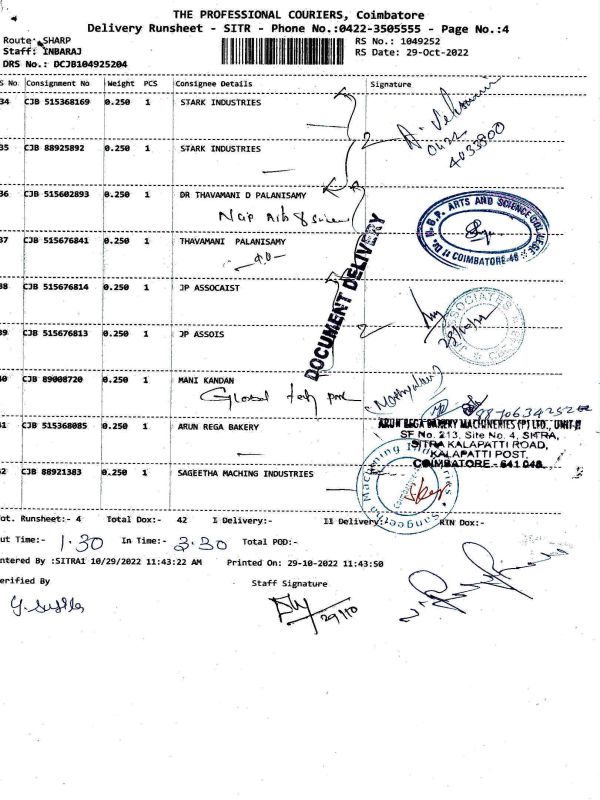 THE PROFESSIONAL COURIERS, Coimbatore
Delivery Runsheet - SITR - Phone No.:0422-3505555 - Page No.:4
Route: SHARP
RS No.: 1049252
Staff: INBARAJ
RS Date: 29-Oct-2022
DRS No.: DCJB104925204
S No. Consignment No Weight PCS Consignee Details Signature
34 CJB 515368169 0.250 1 STARK INDUSTRIES
0422
4033800
35 CJB 88925892 0.250 1 STARK INDUSTRIES
36 CJB 515602893 0.250 1 DR THAVAMANI D PALANISAMY
Dr. N.G.P. ARTS AND SCIENCE COLLEGE
COIMBATORE-48
37 CJB 515676841 0.250 1 THAVAMANI PALANISAMY
-do-
DOCUMENT DELIVERY
38 CJB 515676814 0.250 1 JP ASSOCAIST
39 CJB 515676813 0.250 1 JP ASSOIS
40 CJB 89008720 0.250 1 MANI KANDAN
Global
41 CJB 515368085 0.250 1 ARUN REGA BAKERY
ARUN REGA BAKERY MACHINERIES (P) LTD., UNIT-II
SF No. 213, Site No. 4, SITRA,
SITRA KALAPATTI ROAD,
KALAPATTI POST,
COIMBATORE - 641 048.
42 CJB 88921383 0.250 1 SAGEETHA MACHING INDUSTRIES
Sangeetha Machining Industries
Tot. Runsheet:- 4 Total Dox:- 42 I Delivery:- II Delivery:- RTN Dox:-
Out Time:- 1.30 In Time:- 3.30 Total POD:-
Entered By :SITRA1 10/29/2022 11:43:22 AM Printed On: 29-10-2022 11:43:50
Verified By Staff Signature
29/10